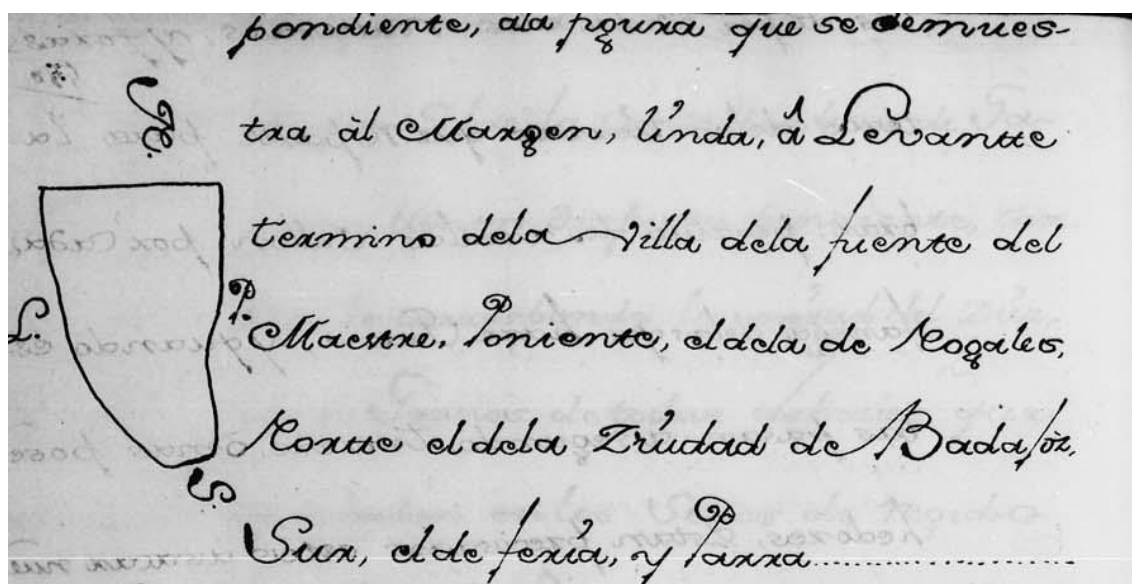 pondiente, ala figura que se demues-
N.
tra àl Margen, linda, â Levantte
termino dela Villa dela fuente del
P.
L
Maestre, Poniente, el dela de Nogales,
Nortte el dela Ziudad de Badajòz,
S
Sur, el de feria, y Parra